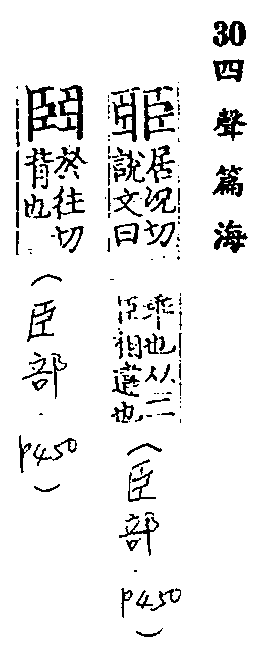 30四聲篇海
臦
居況切
說文曰
乖也从二
臣相違也
(臣部.p450)
於往切
背也
(臣部.p450)